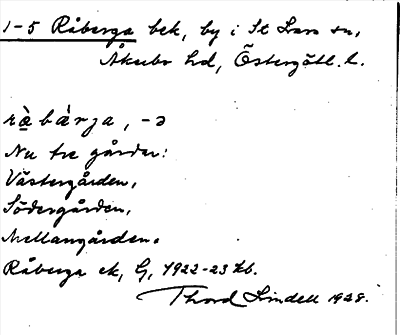 1-5 Råberga bek, by i St Lars sn,
Åkerbo hd, Östergötl. l.
rà̱bärja, -ə
Nu tre gårdar:
Västergården,
Södergården,
Mellangården.
Råberga ek, G, 1922-23 kb.
Thord Lindell 1928.